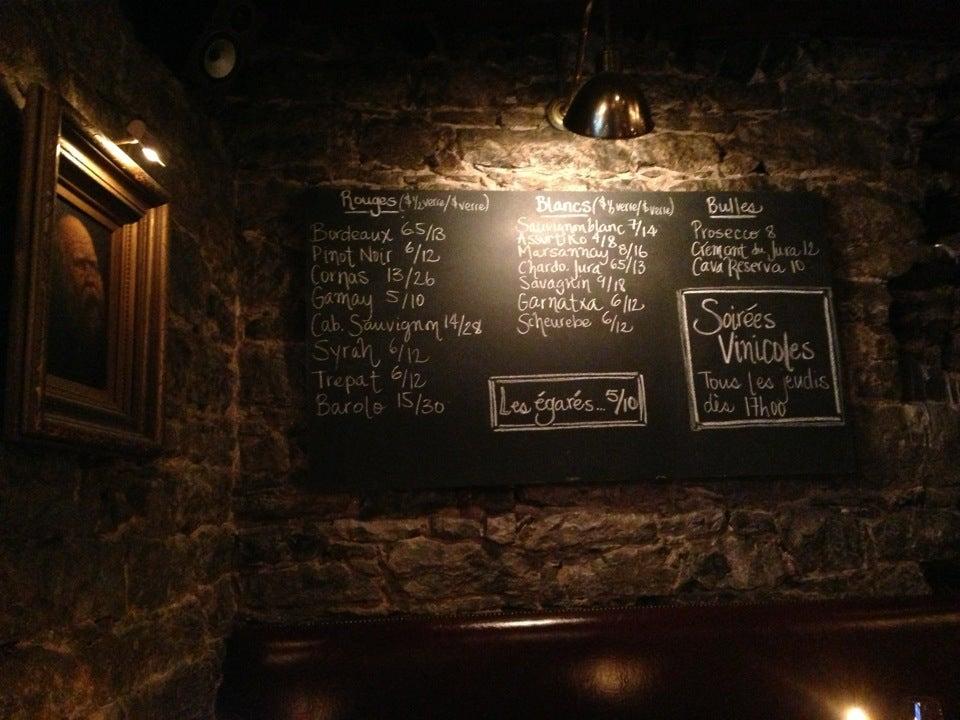 Rouges ($½ verre/$verre)
Bordeaux 6.5/13
Pinot Noir 6/12
Cornas 13/26
Gamay 5/10
Cab. Sauvignon 14/28
Syrah 6/12
Trepat 6/12
Barolo 15/30
Blancs ($½ verre/$verre)
Sauvignon blanc 7/14
Assurtiko 4/8
Marsannay 8/16
Chardo. Jura 6.5/13
Savagnin 9/18
Garnatxa 6/12
Scheurebe 6/12
Les égarés... 5/10
Bulles
Prosecco 8
Crémant du Jura 12
Cava Reserva 10
Soirées
Vinicoles
Tous les jeudis
dès 17h00